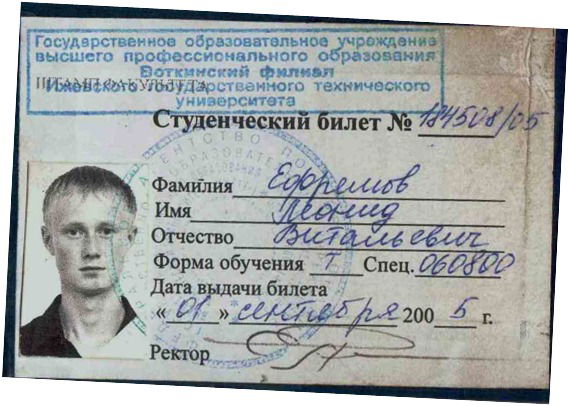 Государственное образовательное учреждение
высшего профессионального образования
Воткинский филиал
ШТАМП ФАКУЛЬТЕТА
Ижевского государственного технического
университета
Студенческий билет № 184508/05
Фамилия Ефремов
Имя Леонид
Отчество Витальевич
Форма обучения Т Спец. 060800
Дата выдачи билета
« 01 » сентября 2005 г.
Ректор